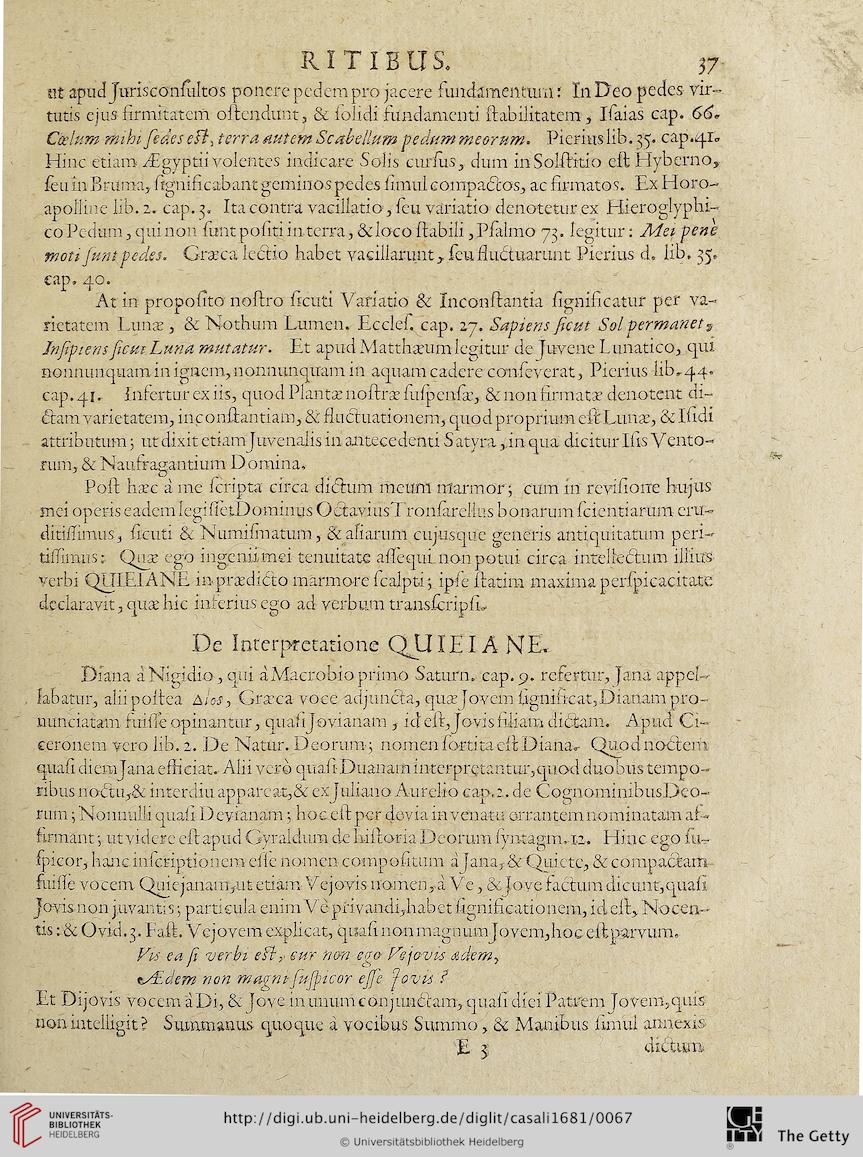 RITIBUS. 37
ut apud Jurisconſultos ponere pedem pro jacere fundamentum: In Deo pedes vir-
tutis ejus firmitatem oſtendunt, & ſolidi fundamenti ſtabilitatem, Iſaias cap. 66.
Cœlum mihi ſedes eſt, terra autem Scabellum pedum meorum. Pierius lib. 35. cap. 41.
Hinc etiam Ægyptii volentes indicare Solis curſus, dum in Solſtitio eſt Hyberno,
ſeu in Bruma, ſignificabant geminos pedes ſimul compactos, ac firmatos. Ex Horo-
apolline lib. 2. cap. 3. Ita contra vacillatio, ſeu variatio denotetur ex Hieroglyphi-
co Pedum, qui non ſunt poſiti in terra, & loco ſtabili, Pſalmo 73. legitur: Mei penè
moti ſunt pedes. Græca lectio habet vacillarunt, ſeu fluctuarunt Pierius d. lib. 35.
cap. 40.
At in propoſito noſtro ſicuti Variatio & Inconſtantia ſignificatur per va-
rietatem Lunæ, & Nothum Lumen. Eccleſ. cap. 27. Sapiens ſicut Sol permanet,
Inſipiens ſicut Luna mutatur. Et apud Matthæum legitur de Juvene Lunatico, qui
nonnunquam in ignem, nonnunquam in aquam cadere conſeverat, Pierius lib. 44.
cap. 41. Infertur ex iis, quod Plantæ noſtræ ſuſpenſæ, & non firmatæ denotent di-
ctam varietatem, inconſtantiam, & fluctuationem, quod proprium eſt Lunæ, & Iſidi
attributum; ut dixit etiam Juvenalis in antecedenti Satyra, in qua dicitur Iſis Vento-
rum, & Naufragantium Domina.
Poſt hæc à me ſcripta circa dictum meum marmor; cum in reviſione hujus
mei operis eadem legiſſet Dominus Octavius Tronſarellus bonarum ſcientiarum eru-
ditiſſimus, ſicuti & Numiſmatum, & aliarum cujusque generis antiquitatum peri-
tiſſimus: Quæ ego ingenii mei tenuitate aſſequi non potui circa intellectum illius
verbi QUIEIANE in prædicto marmore ſcalpti; ipſe ſtatim maxima perſpicacitate
declaravit, quæ hic inferius ego ad verbum transſcripſi.
De Interpretatione QUIEIANE.
Diana à Nigidio, qui à Macrobio primo Saturn. cap. 9. refertur, Jana appel-
labatur, alii poſtea Διος, Græca voce adjuncta, quæ Jovem ſignificat, Dianam pro-
nunciatam fuiſſe opinantur, quaſi Jovianam, id eſt, Jovis filiam dictam. Apud Ci-
ceronem vero lib. 2. De Natur. Deorum; nomen ſortita eſt Diana. Quod noctem
quaſi diem Jana efficiat. Alii verò quaſi Duanam interpretantur, quod duobus tempo-
ribus noctu, & interdiu appareat, & ex Juliano Aurelio cap. 2. de Cognominibus Deo-
rum; Nonnulli quaſi Devianam; hoc eſt per devia in venatu errantem nominatam af-
firmant; ut videre eſt apud Gyraldum de hiſtoria Deorum ſyntagm. 12. Hinc ego ſu-
ſpicor, hanc inſcriptionem eſſe nomen compoſitum à Jana, & Quiete, & compactam
fuiſſe vocem Quiejanam, ut etiam Vejovis nomen, à Ve, & Jove factum dicunt, quaſi
Jovis non juvantis; particula enim Vè privandi, habet ſignificationem, id eſt, Nocen-
tis: & Ovid. 3. Faſt. Vejovem explicat, quaſi non magnum Jovem, hoc eſt parvum.
Vis ea ſi verbi eſt, cur non ego Vejovis ædem,
Ædem non magni ſuſpicor eſſe Jovis?
Et Dijovis vocem à Di, & Jove in unum conjunctam, quaſi diei Patrem Jovem, quis
non intelligit? Summanus quoque à vocibus Summo, & Manibus ſimul annexis
E 3 dictum
UNIVERSITÄTS-
BIBLIOTHEK
HEIDELBERG
http://digi.ub.uni-heidelberg.de/diglit/casali1681/0067
© Universitätsbibliothek Heidelberg
GETTY
The Getty